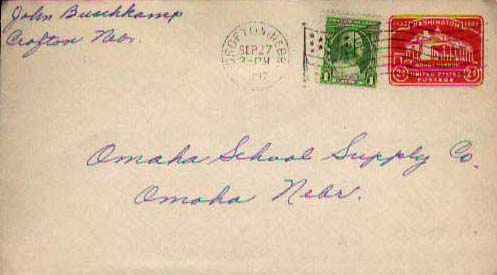 John Buschkamp
Crofton Nebr.
CROFTON NEBR
SEP 27
3-PM
1732 WASHINGTON 1932
MOUNT VERNON
2¢ 2¢
UNITED STATES
POSTAGE
1 1
Omaha School Supply Co.
Omaha Nebr.